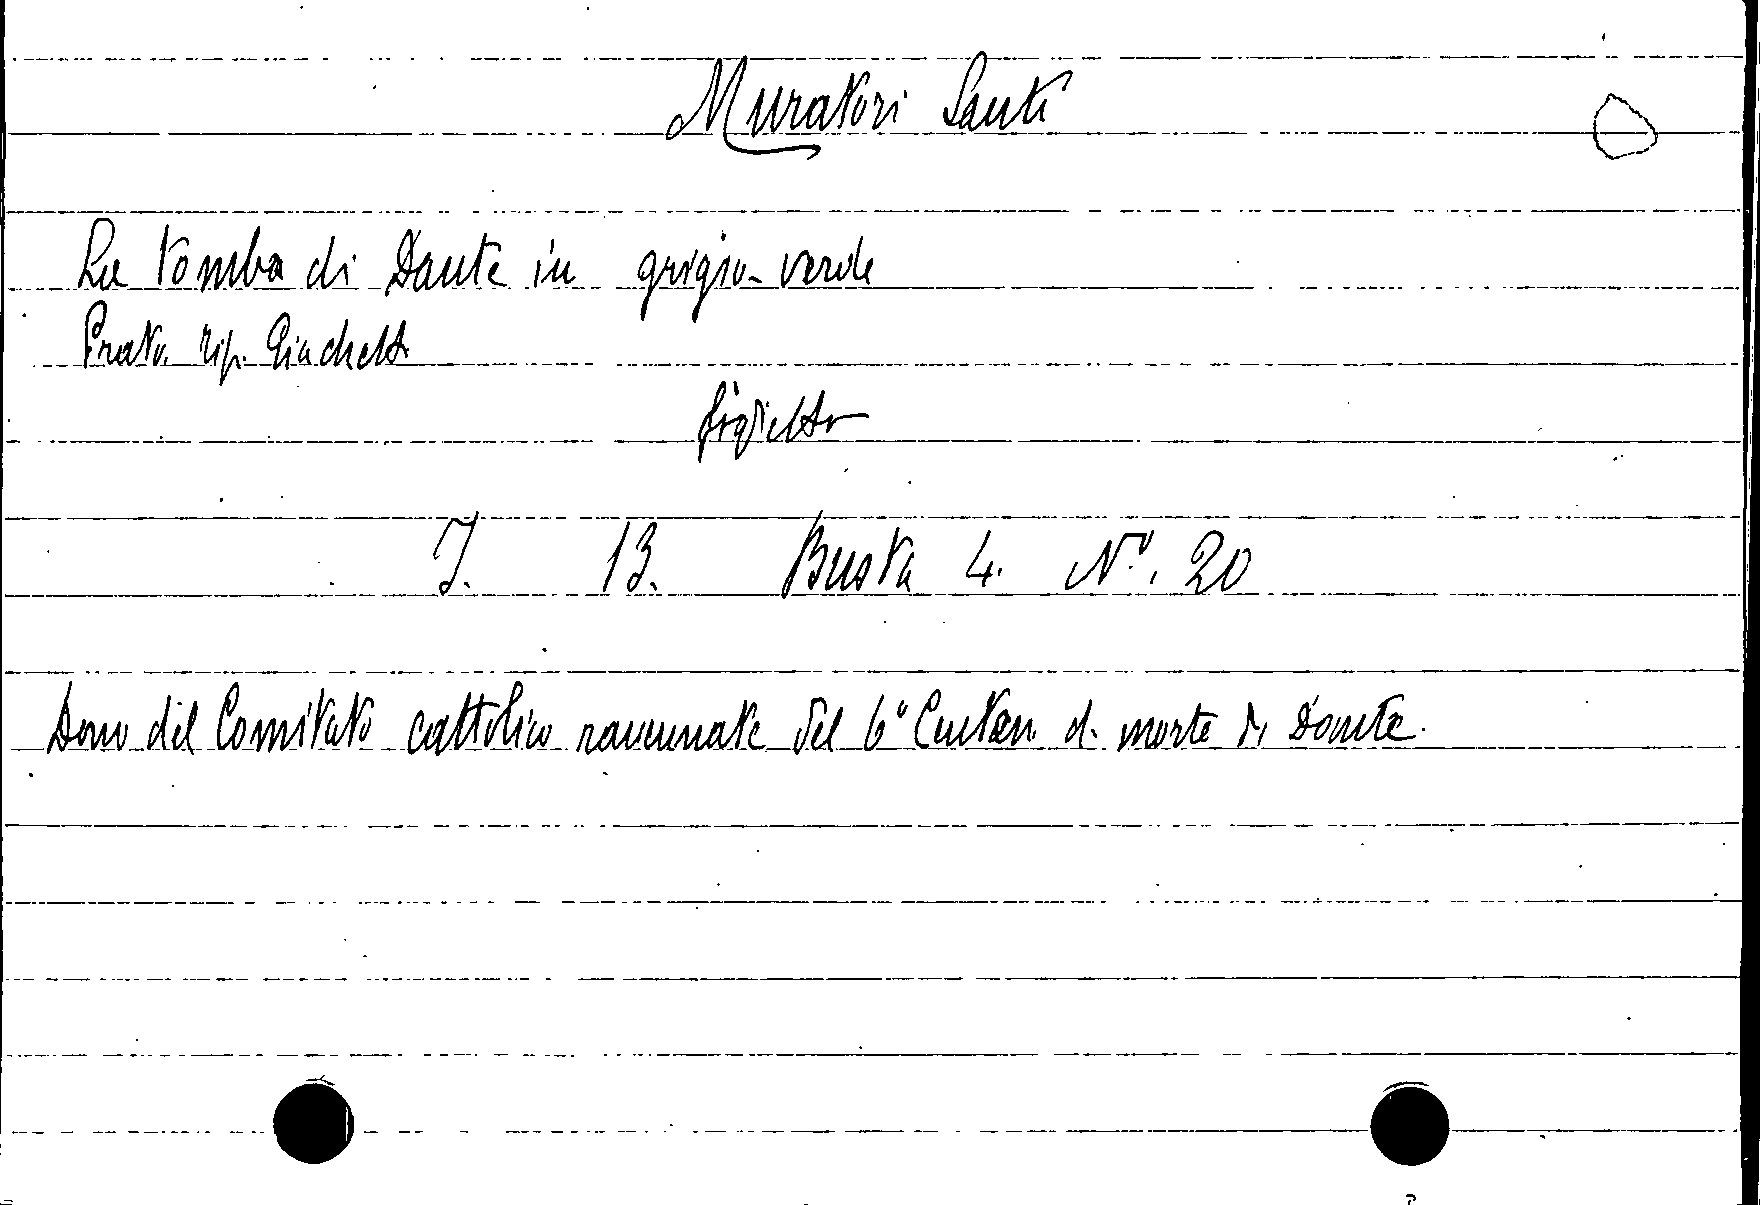 Muratori Santi
La tomba di Dante in grigio-verde
Prato. tip. Giachetti
foglietto
I. 13. Busta 4. N°. 20
Dono del Comitato cattolico ravennate del 6° Centen. d. morte di Dante.